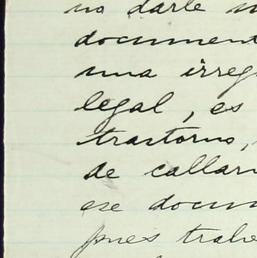 no darle
document
una irreg
legal, es
trastorno,
de callar
ese docum
pues trab